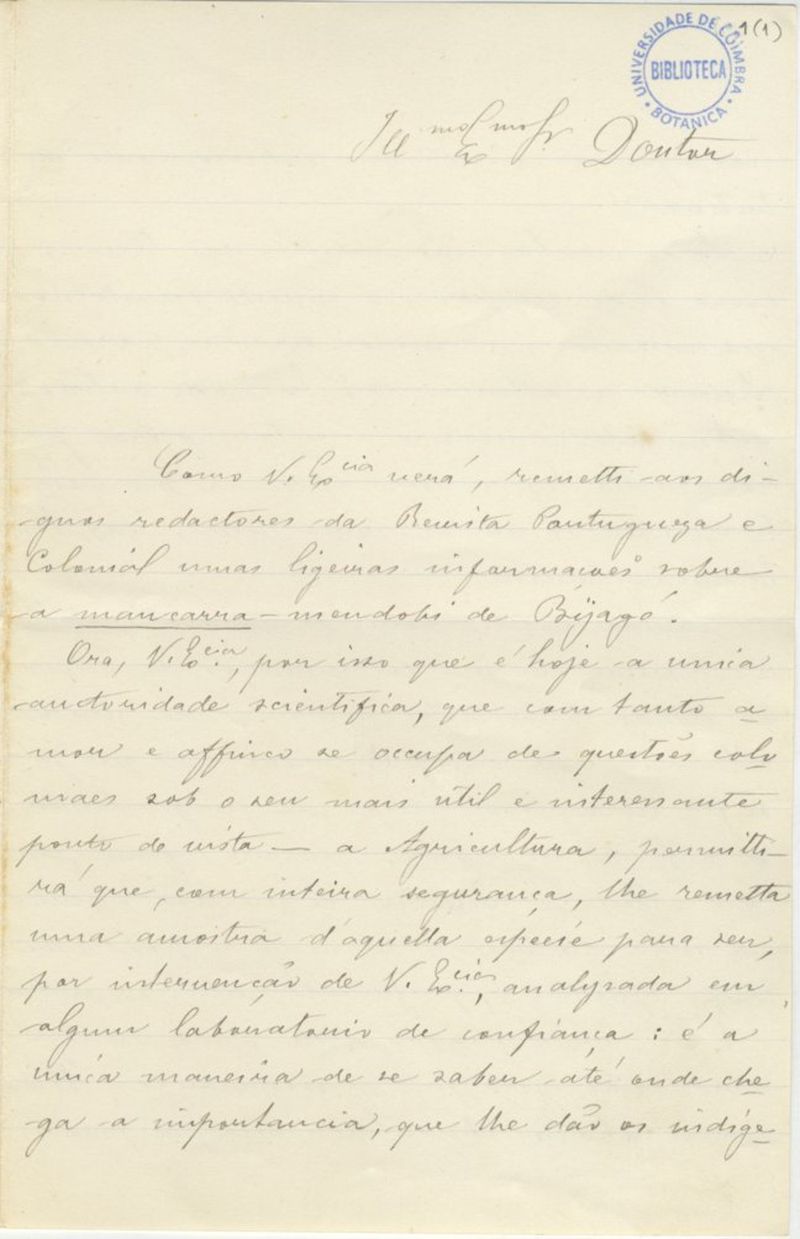 1(1)
UNIVERSIDADE DE COIMBRA
BIBLIOTECA
BOTANICA
Ill.mo Ex.mo Sr. Doutor
Como V. Ex.cia verá, remetti aos di-
gnos redactores da Revista Portugueza e
Colonial umas ligeiras informações sobre
a mancarra-mendobi de Bijagó.
Ora, V. Ex.cia, por isso que é hoje a unica
auctoridade scientifica, que com tanto a-
mor e affinco se occupa de questões colo-
niaes sob o seu mais util e interessante
ponto de vista — a Agricultura, permitti-
rá que, com inteira segurança, lhe remetta
uma amostra d'aquella espécie para ser,
por intervenção de V. Ex.cia, analysada em
algum laboratorio de confiança: é a
unica maneira de se saber até onde che-
ga a importancia, que lhe dão os indige-